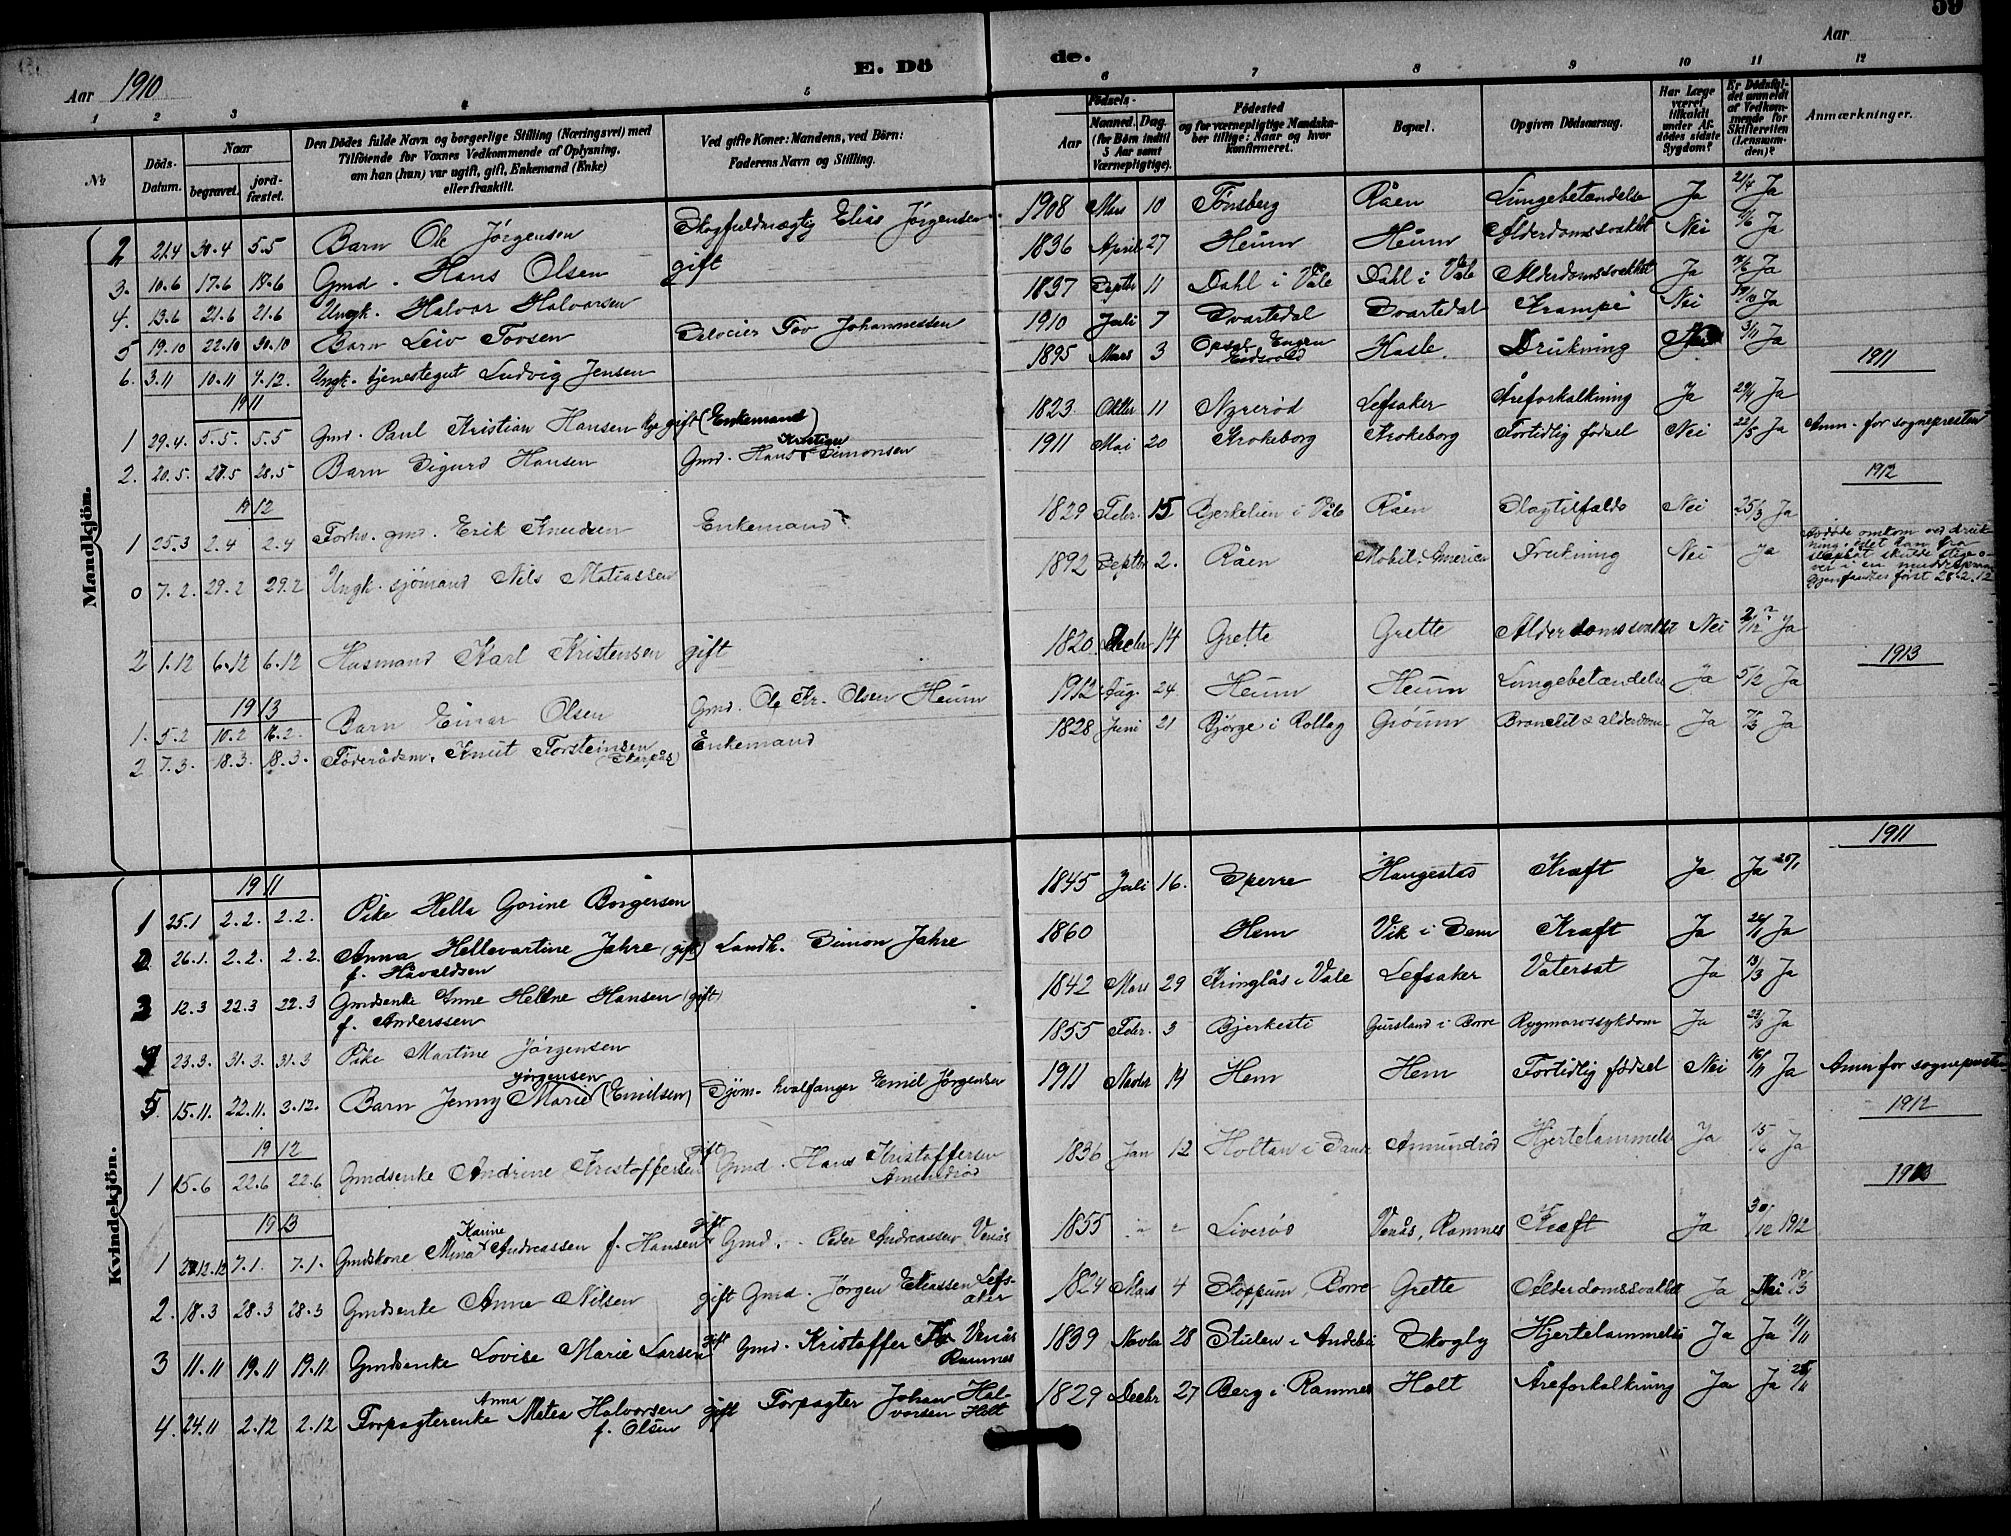 59
E. Dö de.
Aar 1910
Aar
1 2 3 4 5 6 7 8 9 10 11 12
№ Döds-Datum. Naar begravet. jord-fæstet. Den Dödes fulde Navn og borgerlige Stilling (Næringsvei) med Tilföiende for Voxnes Vedkommende af Oplysning, om han (hun) var ugift, gift, Enkemand (Enke) eller fraskilt. Ved gifte Koner: Mandens, ved Börn: Faderens Navn og Stilling. Födsels- Aar Maaned. Dag. (for Börn indtil 5 Aar samt Værnepligtige). Födested og for værnepligtige Mandska-ber tillige: Naar og hvor konfirmeret. Bopæl. Opgiven Dödsaarsag. Har Læge været tilkaldt under Af-dödes sidste Sygdom? Er Dödsfal-det anmeldt af Vedkom-mende for Skifteretten (Lensman-den)? Anmærkninger.
Mandkjön.
2 21.4 30.4 5.5 Barn Ole Jörgensen Skogfuldmægtig Elias Jörgensen 1908 Mars 10 Tönsberg Råen Lungebetændelse Ja 21/4 Ja
3. 10.6 17.6 17.6 Gmd. Hans Olsen gift 1836 April 27 Heum Heum Alderdomssvakhet Nei Ja
4. 13.6 21.6 21.6 Ungk. Halvor Halvorsen 1837 Septbr 11 Dahl i Våle Dahl i Våle Alderdomssvakhet Ja Ja
5 19.10 22.10 30.10 Barn Leiv Tovsen Tov Johannessen 1910 Juli 7 Svartedal Svartedal Krampe Nei 19/10 Ja
6. 3.11 10.11 4.12. Ungk. tjenestegut Ludvig Jensen 1895 Mars 3 Engen Hasle. Drukning 3/11 Ja
1911
1911
1 29.4. 5.5. 5.5 Gmd. Paul Kristian Hansen gift (Enkemand) 1823 Oktbr 11 Nyrerød Lefsaker Åreforkalkning Ja 29/4 Ja
2. 20.5. 28.5 28.5 Barn Sigurd Hansen Gmd. Hans Kristian Simonsen 1911 Mai 20 Krokeborg Krokeborg Fortidlig fødsel Nei 22/5 Ja Anm. for sognepresten
1912
1912
1 25.3 2.4 2.4 Forhv. gmd. Erik Knudsen Enkemand 1829 Febr. 15 Bjerkelien i Våle Råen Slagtilfælde Nei 25/3 Ja
0 7.2. 29.2 29.2 Ungk. sjömand Nils Matiassen 1892 Septbr 2. Råen Mobil, America Drukning Nei Ja Afdöde omkom ved druk-ning, idet han fra skulde stige o-ver i en . Gjenfandtes först 28.2.12
2 1.12 6.12 6.12 Husmand Karl Kristensen gift 1820 Decbr 14 Grette Grette Alderdomssvakhet Nei 2/12 Ja
1913
1913
1. 5.2 10.2 16.2. Barn Einar Olsen Gmd. Ole Kr. Olsen Heum 1912 Aug. 24 Heum Heum Lungebetændelse Ja 5/2 Ja
2 7.3. 18.3. 18.3. Föderådsm. Knut Torsteinsen (Skarpås) Enkemand 1828 Juni 21 Bjørge i Rollag Grøum Bronchit & alderdom Ja 7/3 Ja
Kvindekjön.
1911
1911
1 25.1 2.2. 2.2. Pike Hella Gorine Borgersen 1845 Juli 16. Sperre Haugestad Kræft Ja Ja 25/1
2 26.1. 2.2. 2.2. Anna Hellevartine Jahre (gift) f. Håvaldsen Landh. Simon Jahre 1860 Hem Vik i Sem Kræft Ja 26/1 Ja
3 12.3 22.3 22.3 Gmdsenke Anne Helene Hansen (gift) f. Anderssen 1842 Mars 29 Kringlås i Våle Lefsaker Vatersot Ja 13/3 Ja
4 23.3. 31.3. 31.3 Pike Martine Jørgensen 1855 Febr. 3 Bjerkesti Gursland i Borre Rygmarvssykdom Ja 23/3 Ja
5. 15.11. 22.11. 3.12. Barn Jenny Marie Jørgensen (Emilsen) Sjöm. hvalfanger Emil Jørgensen 1911 Novbr 14 Hem Hem Fortidlig fødsel Nei 16/11 Ja Anm for sognepresten
1912
1912
1 15.6 22.6 22.6 Gmdsenke Andrine Kristoffersen gift Gmd. Hans Kristoffersen Amundrød 1836 Jan 12 Holtan i Amundrød Hjertelammelse Ja 15/6 Ja
1913
1913
1 27.12.12 7.1. 7.1. Gmdskone Mina Karine Andreassen f. Hansen gift Gmd. Peder Andreassen Venås 1855 Liverød Venås, Ramnes Kræft Ja 30/12 1912
2. 18.3 28.3 28.3 Gmdsenke Anne Nilsen gift Gmd. Jörgen Eliassen Lefs-aker 1824 Mars 4 Stoppum, Borre Grette Alderdomssvakhet Ja Nei 19/3
3 11.11 19.11 19.11 Gmdsenke Lovise Marie Larsen gift Gmd. Kristoffer Venås Ramnes 1839 Novbr 28 Stulen i Andebu Skogly Hjertelammelse Ja Ja 11/11
4. 24.11 2.12 2.12 Forpagterenke Anna Metea Halvorsen f. Olsen gift Forpagter Johan Hal-vorsen Holt 1829 Decbr 27 Berg i Ramnes Holt Åreforkalkning Ja Ja 25/11